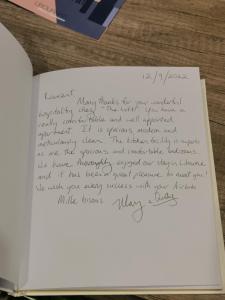 12/9/2022
Many thanks for your wonderful
hospitality chez "The Loft". You have a
really comfortable and well appointed
apartment. It is spacious, modern and
meticulously clean. The kitchen facility is superb
as are the spacious and comfortable bedrooms.
We have thoroughly enjoyed our stay in
and it has been a great pleasure to meet you!
We wish you every success with your
Mille bisous
Mary